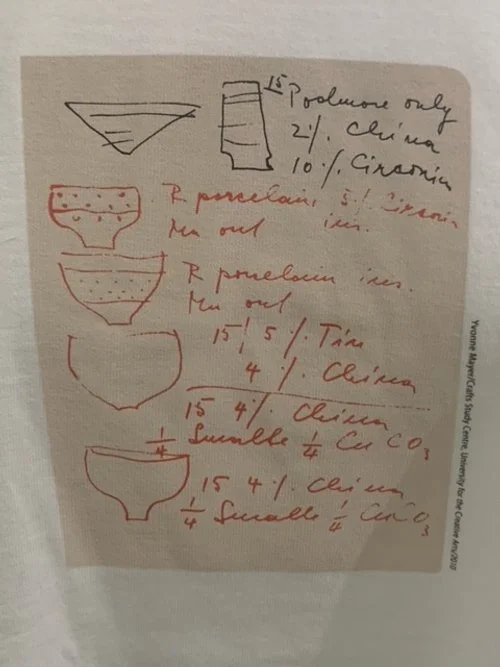 15 Podmore only
2 % China
10 % Circonin
R porcelain 5 % Circonin
Mn out ins.
R porcelain ins.
Mn out
15 5 % Tin
4 % China
15 4 % China
1/4 Smalte 1/4 Cu CO3
15 4 % China
1/4 Smalte 1/4 Cu CO3
Yvonne Mayer/Crafts Study Centre, University for the Creative Arts/2010